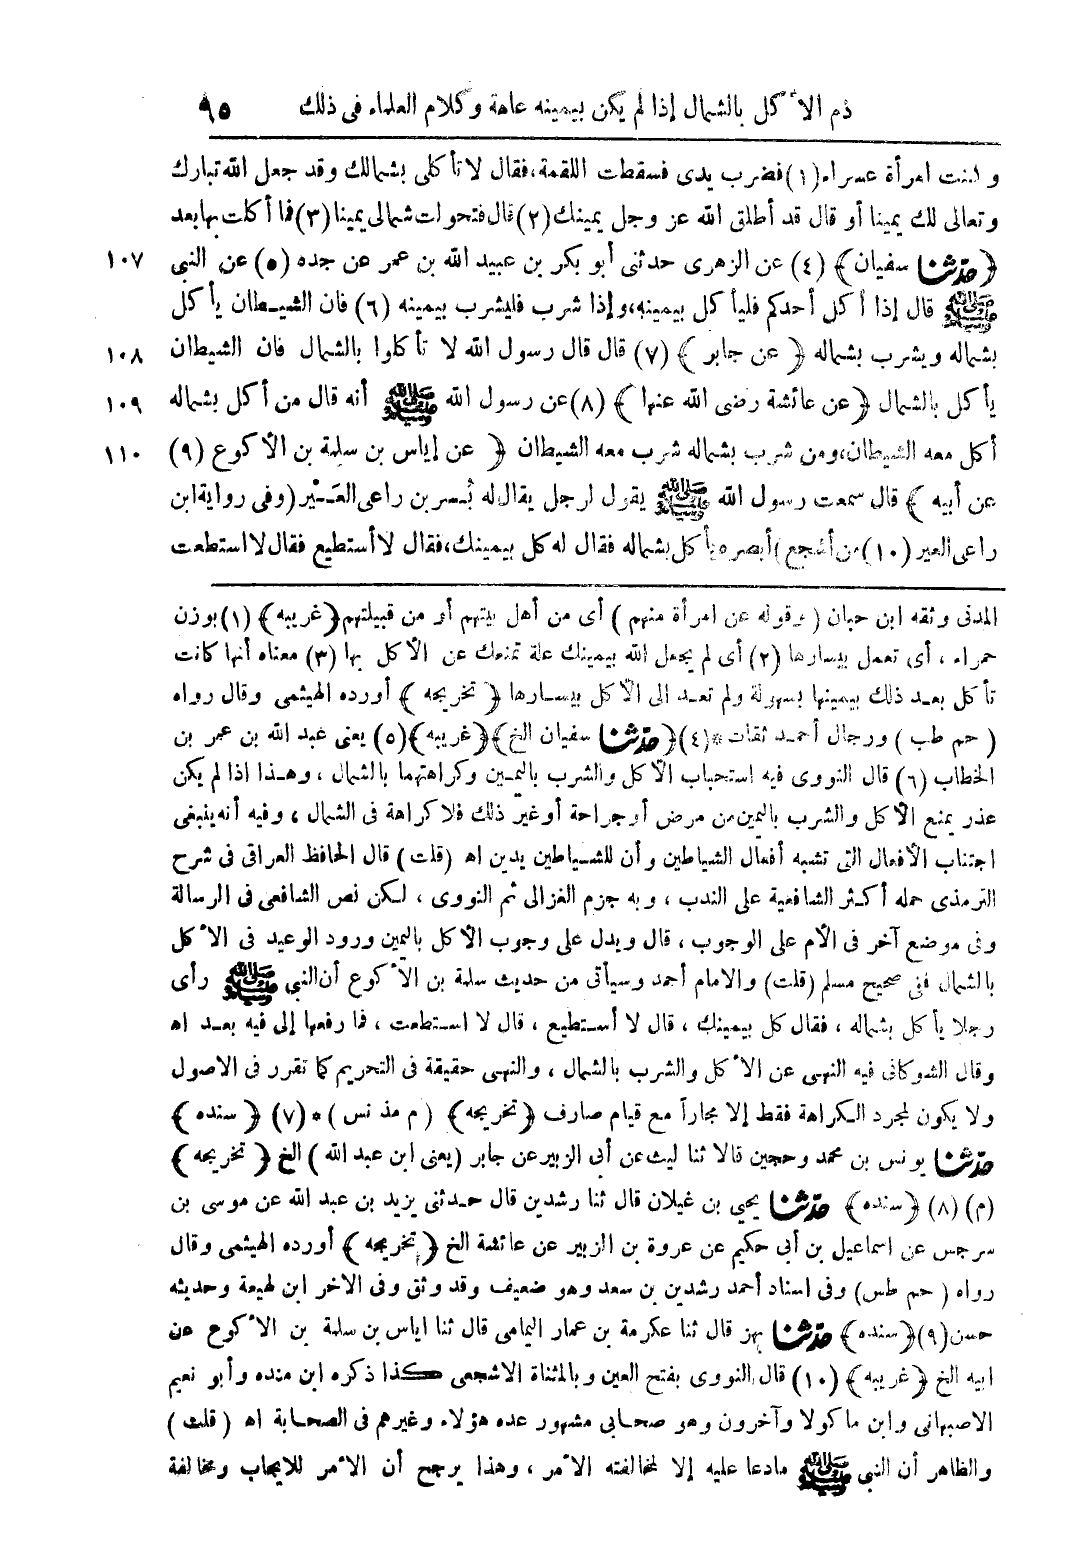 ذم الأكل بالشمال إذا لم يكن بيمينه عاهة وكلام العلماء فى ذلك ٩٥
وكنت امرأة عسراء (١) فضرب يدى فسقطت اللقمة، فقال لا تأكلى بشمالك وقد جعل الله تبارك
وتعالى لك يمينا أو قال قد أطلق الله عز وجل يمينك (٢) قال فتحوات شمالى يمينا (٣) فما أكلت بها بعد
﴿حدثنا سفيان﴾ (٤) عن الزهرى حدثنى أبو بكر بن عبيد الله بن عمر عن جده (٥) عن النبي ١٠٧
ﷺ قال إذا أكل أحدكم فليأكل بيمينه، وإذا شرب فليشرب بيمينه (٦) فان الشيطان يأكل
بشماله ويشرب بشماله ﴿عن جابر﴾ (٧) قال قال رسول الله لا تأكلوا بالشمال فان الشيطان ١٠٨
يأكل بالشمال ﴿عن عائشة رضى الله عنها﴾ (٨) عن رسول الله ﷺ أنه قال من أكل بشماله ١٠٩
أكل معه الشيطان، ومن شرب بشماله شرب معه الشيطان ﴿عن إياس بن سلمة بن الأكوع (٩) ١١٠
عن أبيه﴾ قال سمعت رسول الله ﷺ يقول لرجل يقال له بُسر بن راعى العَيْر (وفى رواية ابن
راعى العير (١٠) من أشجع) أبصره يأكل بشماله فقال له كل بيمينك، فقال لا أستطيع فقال لا استطعت
المدنى وثقه ابن حبان (وقوله عن امرأة منهم) أى من أهل بيتهم أو من قبيلتهم ﴿غريبه﴾ (١) بوزن
حمراء، أى تعمل بيسارها (٢) أى لم يجعل الله بيمينك علة تمنعك عن الأكل بها (٣) معناه أنها كانت
تأكل بعد ذلك بيمينها بسهولة ولم تعد الى الأكل بيسارها ﴿تخريجه﴾ أورده الهيثمى وقال رواه
(حم طب) ورجال أحمد ثقات * (٤) ﴿حدثنا سفيان الخ﴾ ﴿غريبه﴾ (٥) يعنى عبد الله بن عمر بن
الخطاب (٦) قال النووى فيه استحباب الأكل والشرب باليمين وكراهتهما بالشمال، وهذا اذا لم يكن
عذر يمنع الأكل والشرب باليمين من مرض أو جراحة أو غير ذلك فلا كراهة فى الشمال، وفيه أنه ينبغى
اجتناب الأفعال التى تشبه أفعال الشياطين وأن للشياطين يدين اهـ (قلت) قال الحافظ العراقى فى شرح
الترمذى حمله أكثر الشافعية على الندب، وبه جزم الغزالى ثم النووى، لكن نص الشافعى فى الرسالة
وفى موضع آخر فى الأم على الوجوب، قال ويدل على وجوب الأكل باليمين ورود الوعيد فى الأكل
بالشمال ففى صحيح مسلم (قلت) والامام أحمد وسيأتى من حديث سلمة بن الأكوع أن النبي ﷺ رأى
رجلا يأكل بشماله، فقال كل بيمينك، قال لا أستطيع، قال لا استطعت، فما رفعها إلى فيه بعد اهـ
وقال الشوكانى فيه النهى عن الأكل والشرب بالشمال، والنهى حقيقة فى التحريم كما تقرر فى الاصول
ولا يكون لمجرد الكراهة فقط إلا مجازاً مع قيام صارف ﴿تخريجه﴾ (م مذ نس) * (٧) ﴿سنده﴾
حدثنا يونس بن محمد وحجين قالا ثنا ليث عن أبى الزبير عن جابر (يعنى ابن عبد الله) الخ ﴿تخريجه﴾
(م) (٨) ﴿سنده﴾ حدثنا يحيى بن غيلان قال ثنا رشدين قال حدثنى يزيد بن عبد الله عن موسى بن
سرجس عن اسماعيل بن أبى حكيم عن عروة بن الزبير عن عائشة الخ ﴿تخريجه﴾ أورده الهيثمى وقال
رواه (حم طس) وفى اسناد أحمد رشدين بن سعد وهو ضعيف وقد وثق وفى الاخر ابن لهيعة وحديثه
حسن (٩) ﴿سنده﴾ حدثنا بهز قال ثنا عكرمة بن عمار اليمامى قال ثنا اياس بن سلمة بن الأكوع عن
ابيه الخ ﴿غريبه﴾ (١٠) قال النووى بفتح العين وبالمثناة الاشجعى كذا ذكره ابن منده وأبو نعيم
الاصبهانى وابن ماكولا وآخرون وهو صحابى مشهور عده هؤلاء وغيرهم فى الصحابة اهـ (قلت)
والظاهر أن النبي ﷺ مادعا عليه إلا لمخالفته الأمر، وهذا يرجح أن الأمر للايجاب ومخالفة